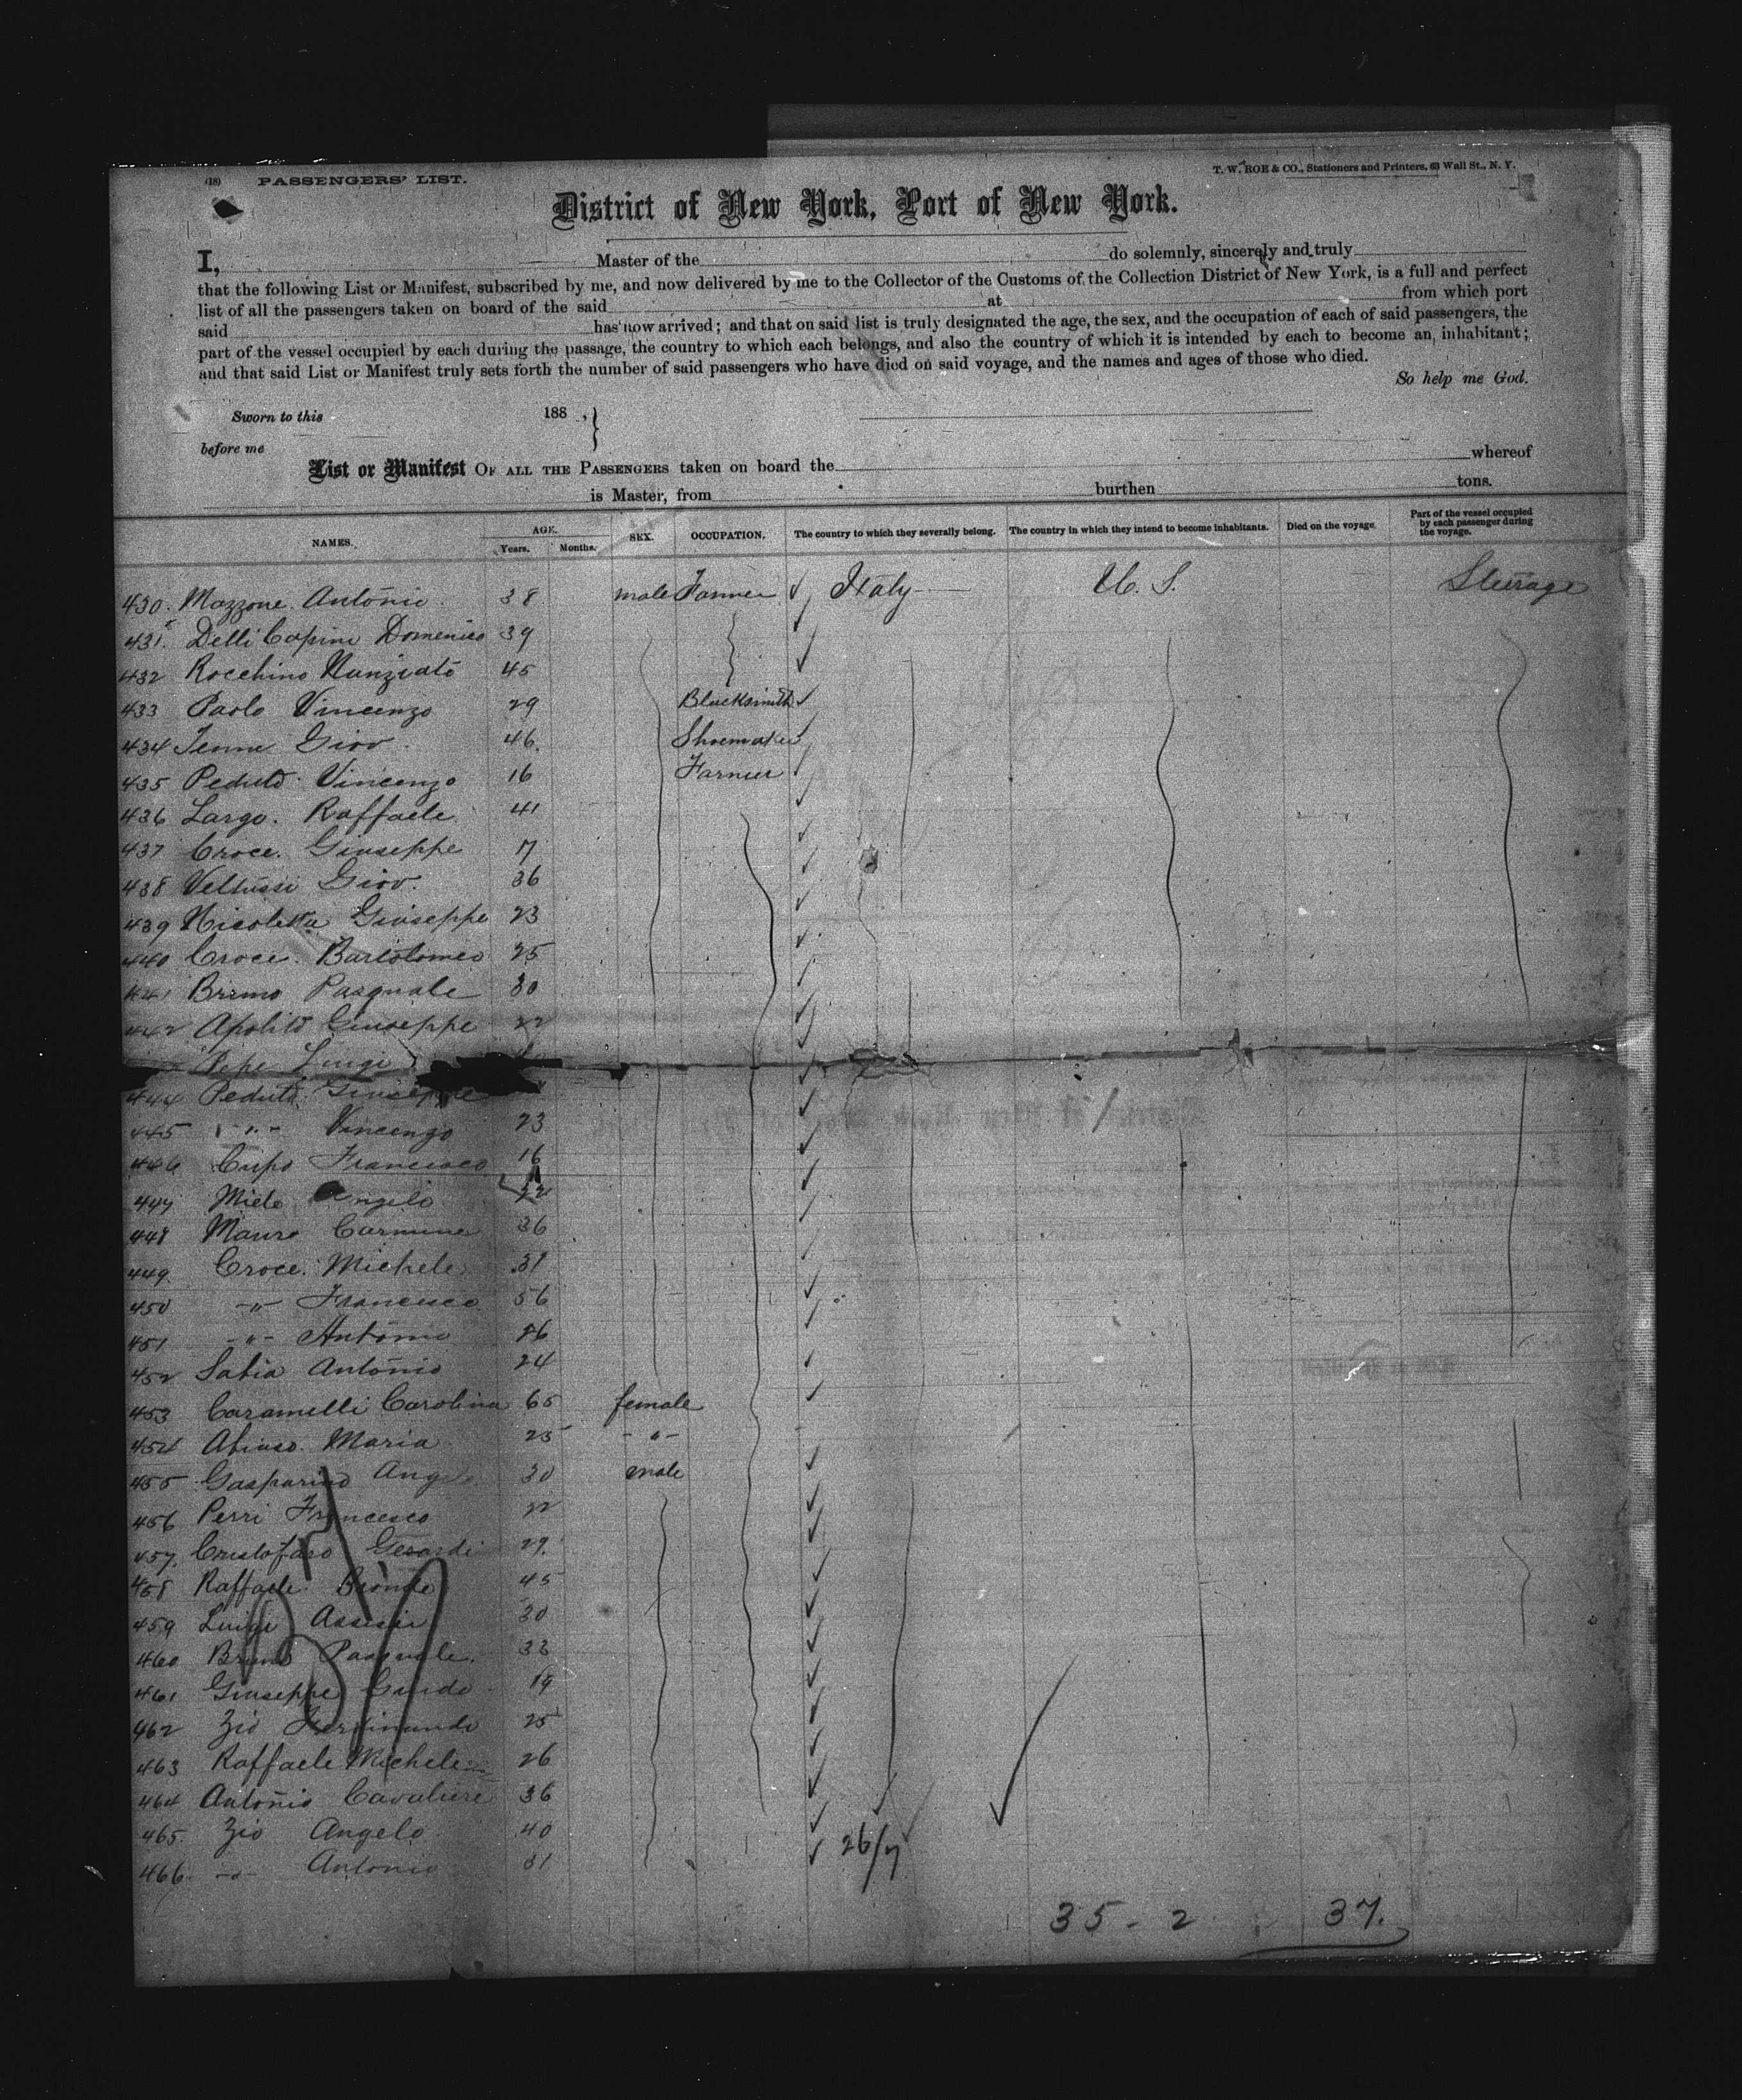 (18) PASSENGERS' LIST.
T. W. ROE & CO., Stationers and Printers, 63 Wall St., N. Y.
District of New York, Port of New York.
I, Master of the do solemnly, sincerely and truly
that the following List or Manifest, subscribed by me, and now delivered by me to the Collector of the Customs of the Collection District of New York, is a full and perfect
list of all the passengers taken on board of the said at from which port
said has now arrived; and that on said list is truly designated the age, the sex, and the occupation of each of said passengers, the
part of the vessel occupied by each during the passage, the country to which each belongs, and also the country of which it is intended by each to become an inhabitant;
and that said List or Manifest truly sets forth the number of said passengers who have died on said voyage, and the names and ages of those who died.
So help me God.
Sworn to this 188 , }
before me
List or Manifest OF ALL THE PASSENGERS taken on board the whereof
is Master, from burthen tons.
NAMES. AGE. Years. Months. SEX. OCCUPATION. The country to which they severally belong. The country in which they intend to become inhabitants. Died on the voyage. Part of the vessel occupied by each passenger during the voyage.
430. Mazzone Antonio 38 male Farmer Italy U. S. Steerage
431. Delli Capini Domenico 39
432 Rocchino Nunziato 45
433 Paolo Vincenzo 29 Blacksmith
434 Giov. 46. Shoemaker
435 Peduto Vincenzo 16 Farmer
436 Largo. Raffaele 41
437 Croce. Giuseppe 17
438 Giov. 36
439 Nicoletta Giuseppe 23
440 Croce. Bartolomeo 25
441 Bruno Pasquale 30
442 Apolito Giuseppe 22
Pepe Luigi
444 Peduto Giuseppe
445 -"- Vincenzo 23
446 Cupo Francesco 16
447 Miele Angelo
448 Mauro Carmine 36
449 Croce. Michele 31
450 -"- Francesco 56
451 -"- Antonio 26
452 Sabia Antonio 24
453 Caramelli Carolina 65 female
454 Maria 25 -"-
455 Gasparino Angelo 30 male
456 Perri Francesco 22
457. Cristofaro Gerardi 29.
458 Raffaele 45
459 Luigi 30
460 Bruno Pasquale. 33
461 Giuseppe Guido 19
462 Zio Ferdinando 25
463 Raffaele Michele 26
464 Antonio Cavaliere 36
465. Zio Angelo 40
466. -"- Antonio 31
26/7
35 - 2 37.